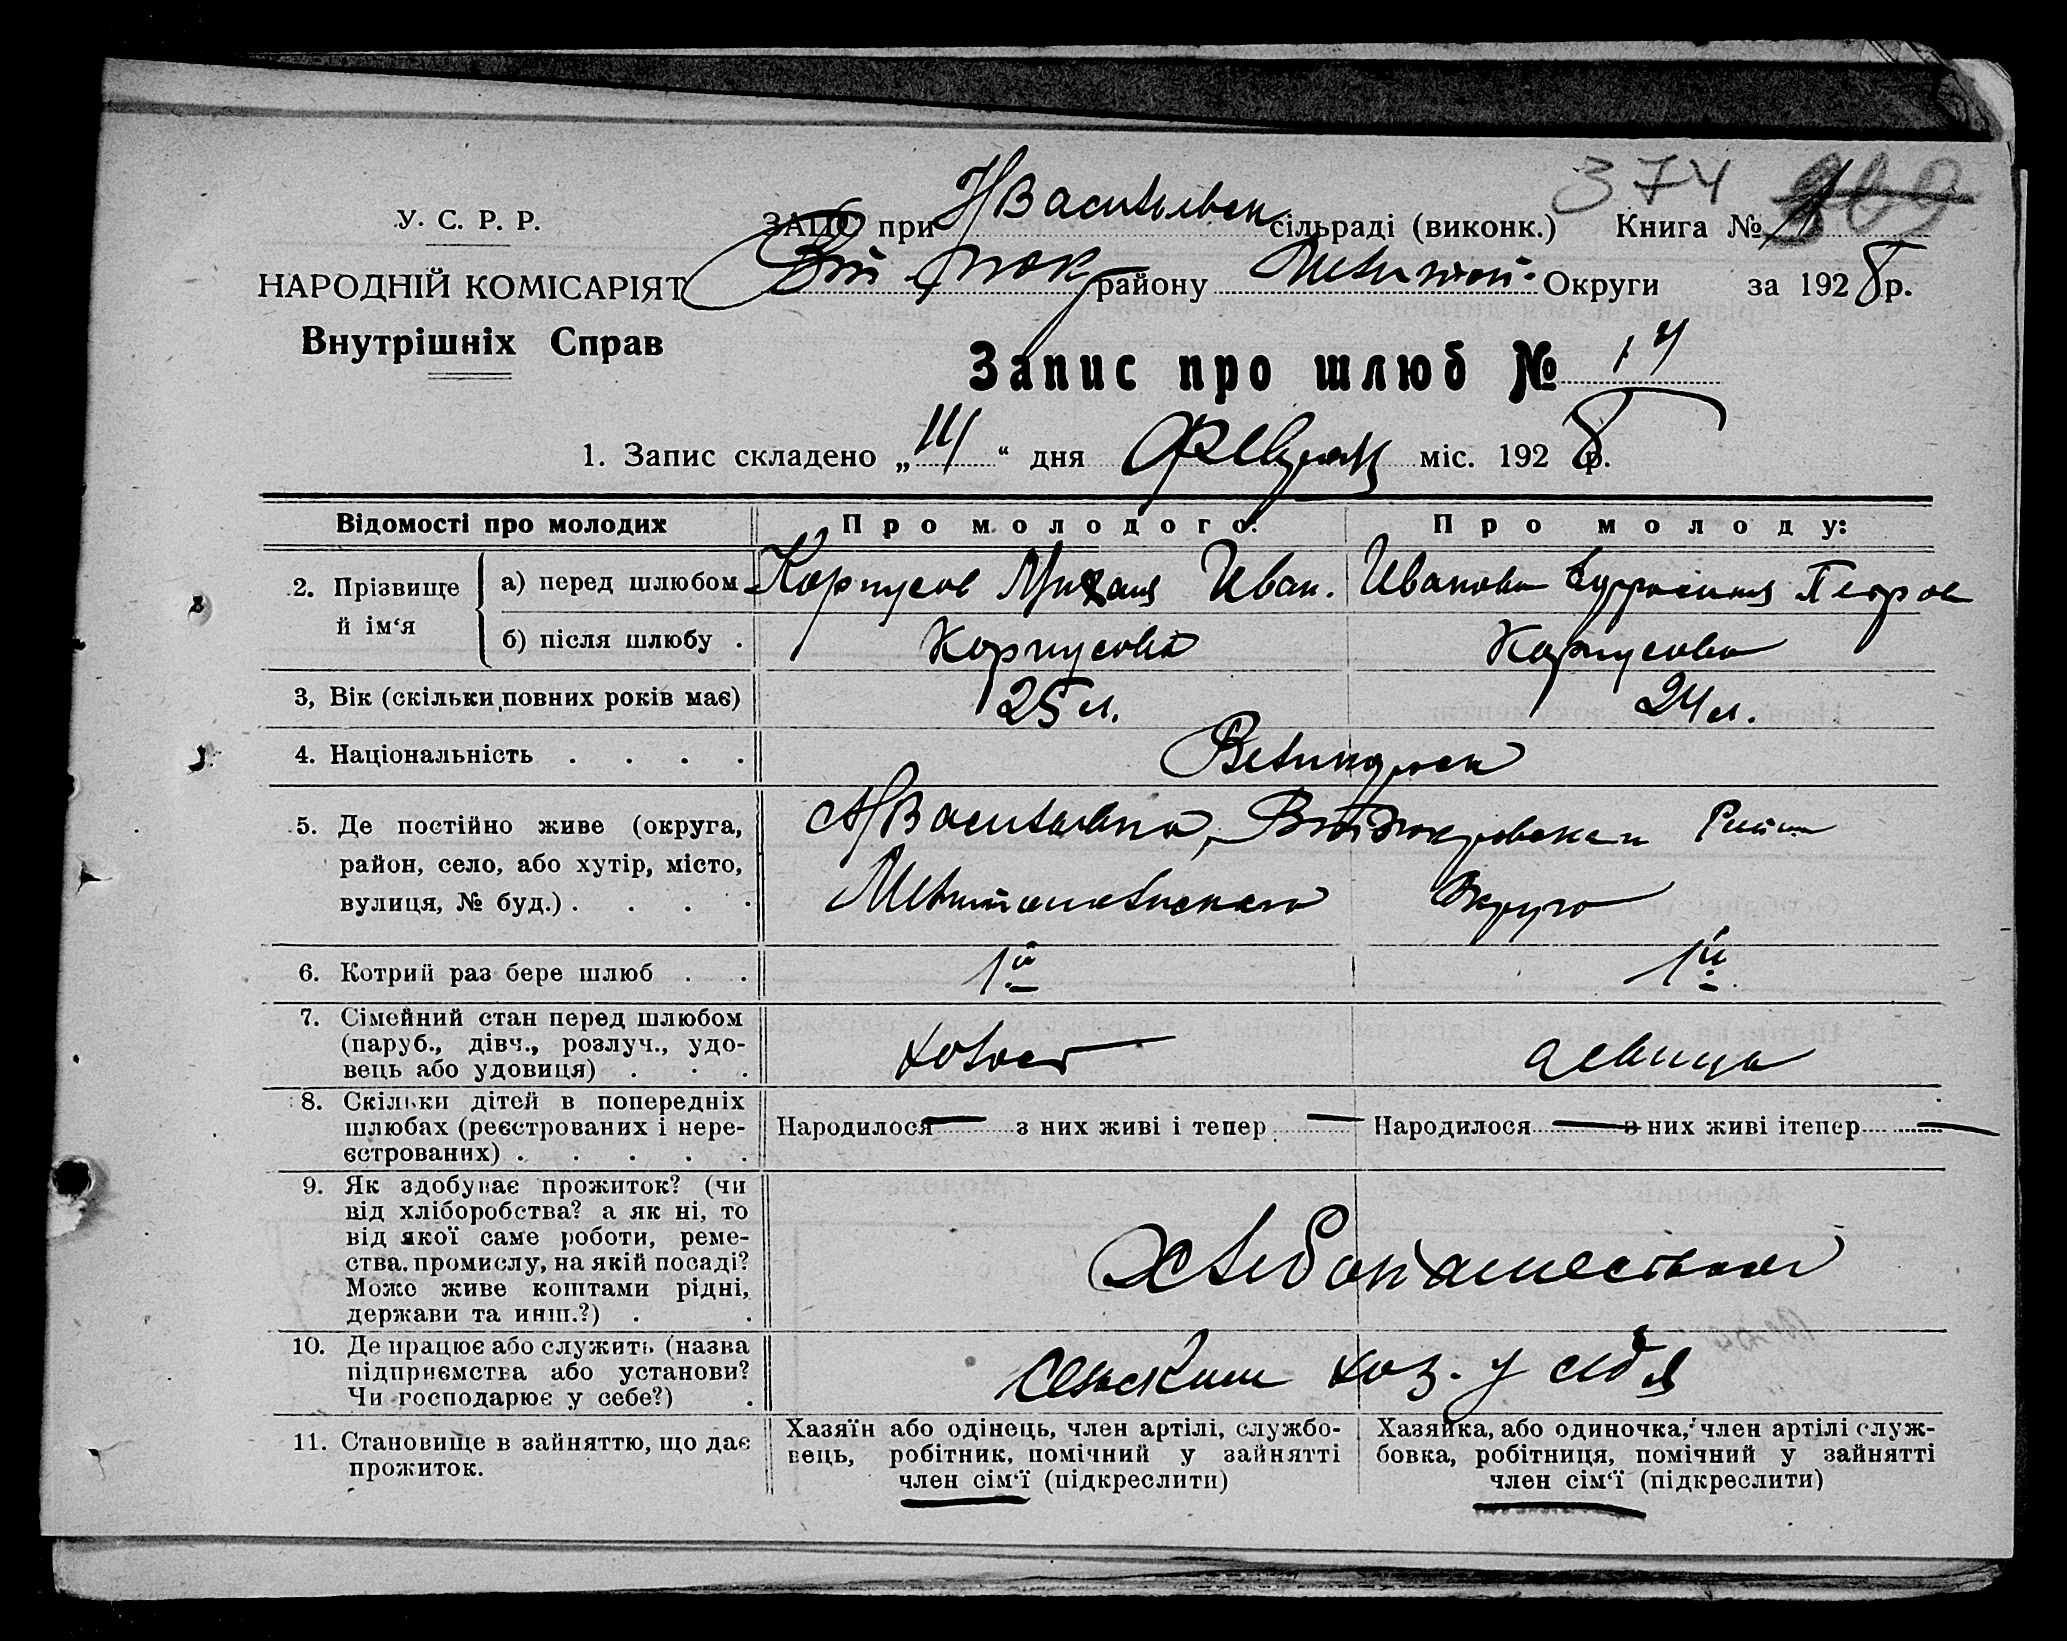 374
У. С. Р. Р.
ЗАЦС при Н Васильевск сільраді (виконк.) Книга № 1
НАРОДНІЙ КОМІСАРІЯТ
району Мелитоп. Округи за 1928 р.
Внутрішніх Справ
Запис про шлюб №
1. Запис складено „ “ дня міс. 1928 р.
Відомості про молодих Про молодого: Про молоду:
2. Прізвище й ім‘я
а) перед шлюбом Корпусов Михаил Иван. Иванова Ефросиния Петров
б) після шлюбу . Корпусова Корпусова
3, Вік (скільки повних років має) 25 л. 24 л.
4. Національність . . . . Великоросн
5. Де постійно живе (округа, Н Васильевка, Района
район, село, або хутір, місто, Мелитопольского Округа
вулиця, № буд.) . . . .
6. Котрий раз бере шлюб . . 1й 1й
7. Сімейний стан перед шлюбом
(паруб., дівч., розлуч., удо- холост девица
вець або удовиця) . . .
8. Скільки дітей в попередніх
шлюбах (реєстрованих і нере- Народилося — з них живі і тепер — Народилося — з них живі і тепер —
єстрованих) . . . . .
9. Як здобуває прожиток? (чи
від хліборобства? а як ні, то
від якої саме роботи, реме-
ства, промислу, на якій посаді? Хлебопашеством
Може живе коштами рідні,
держави та инш.?) . .
10. Де працює або служить (назва
підприємства або установи? Сельским хоз. у себя
Чи господарює у себе?) .
11. Становище в зайняттю, що дає
прожиток.
Хазяїн або одінець, член артілі, службо-
вець, робітник, помічний у зайнятті
член сім‘ї (підкреслити)
Хазяйка, або одиночка, член артілі служ-
бовка, робітниця, помічний у зайнятті
член сім‘ї (підкреслити)